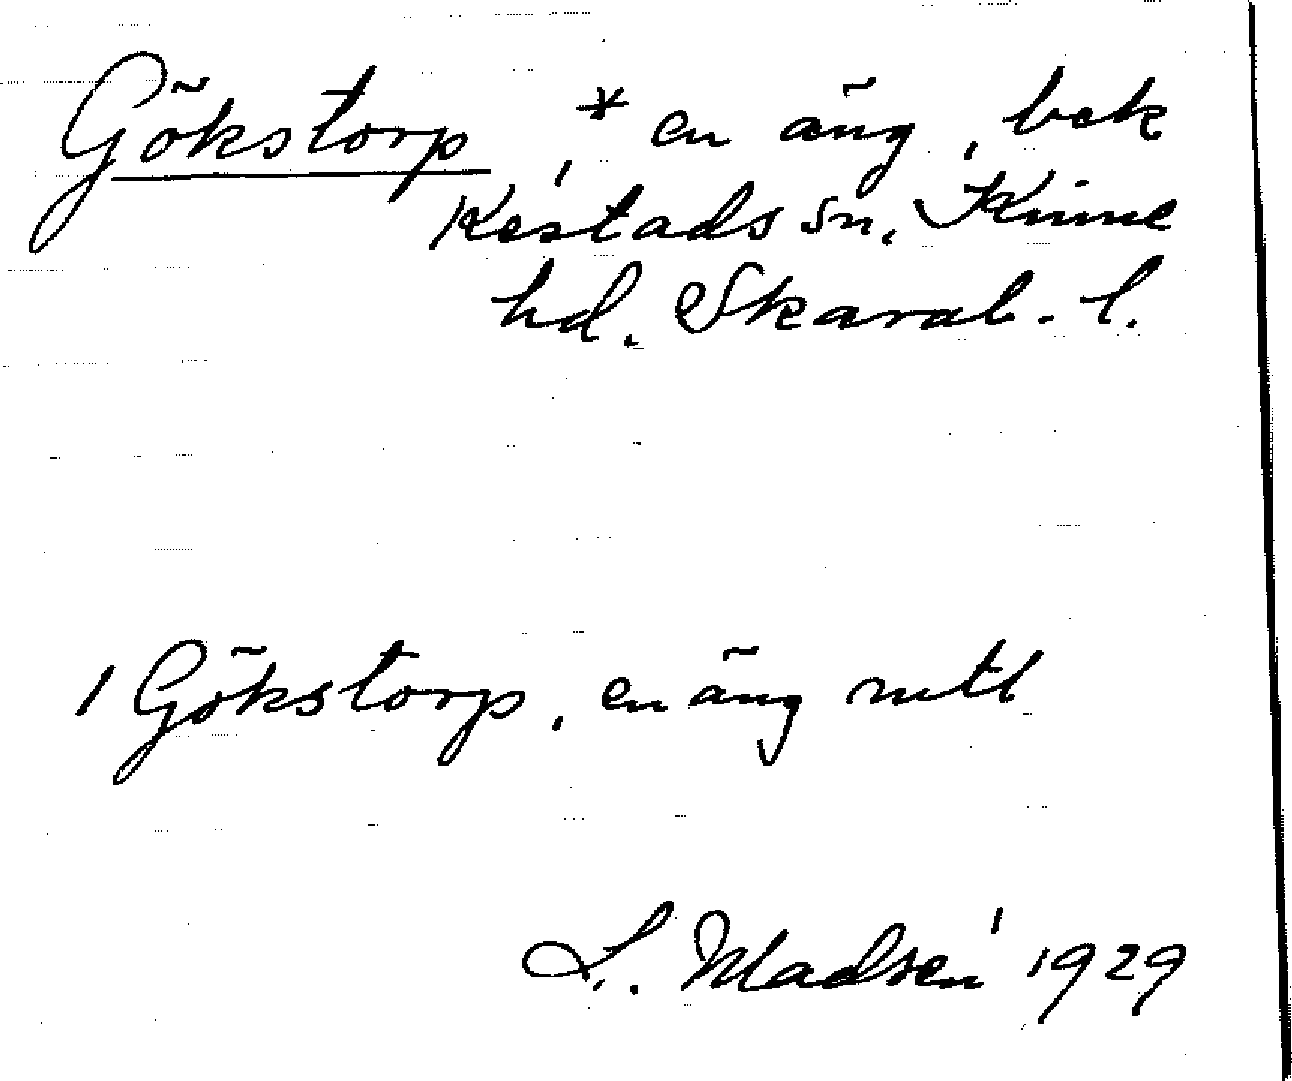 Gökstorp, * en äng, bek
Kestads sn. Kinne
hd. Skarab. l.
1 Gökstorp, en äng mtl
L. Madsén 1929